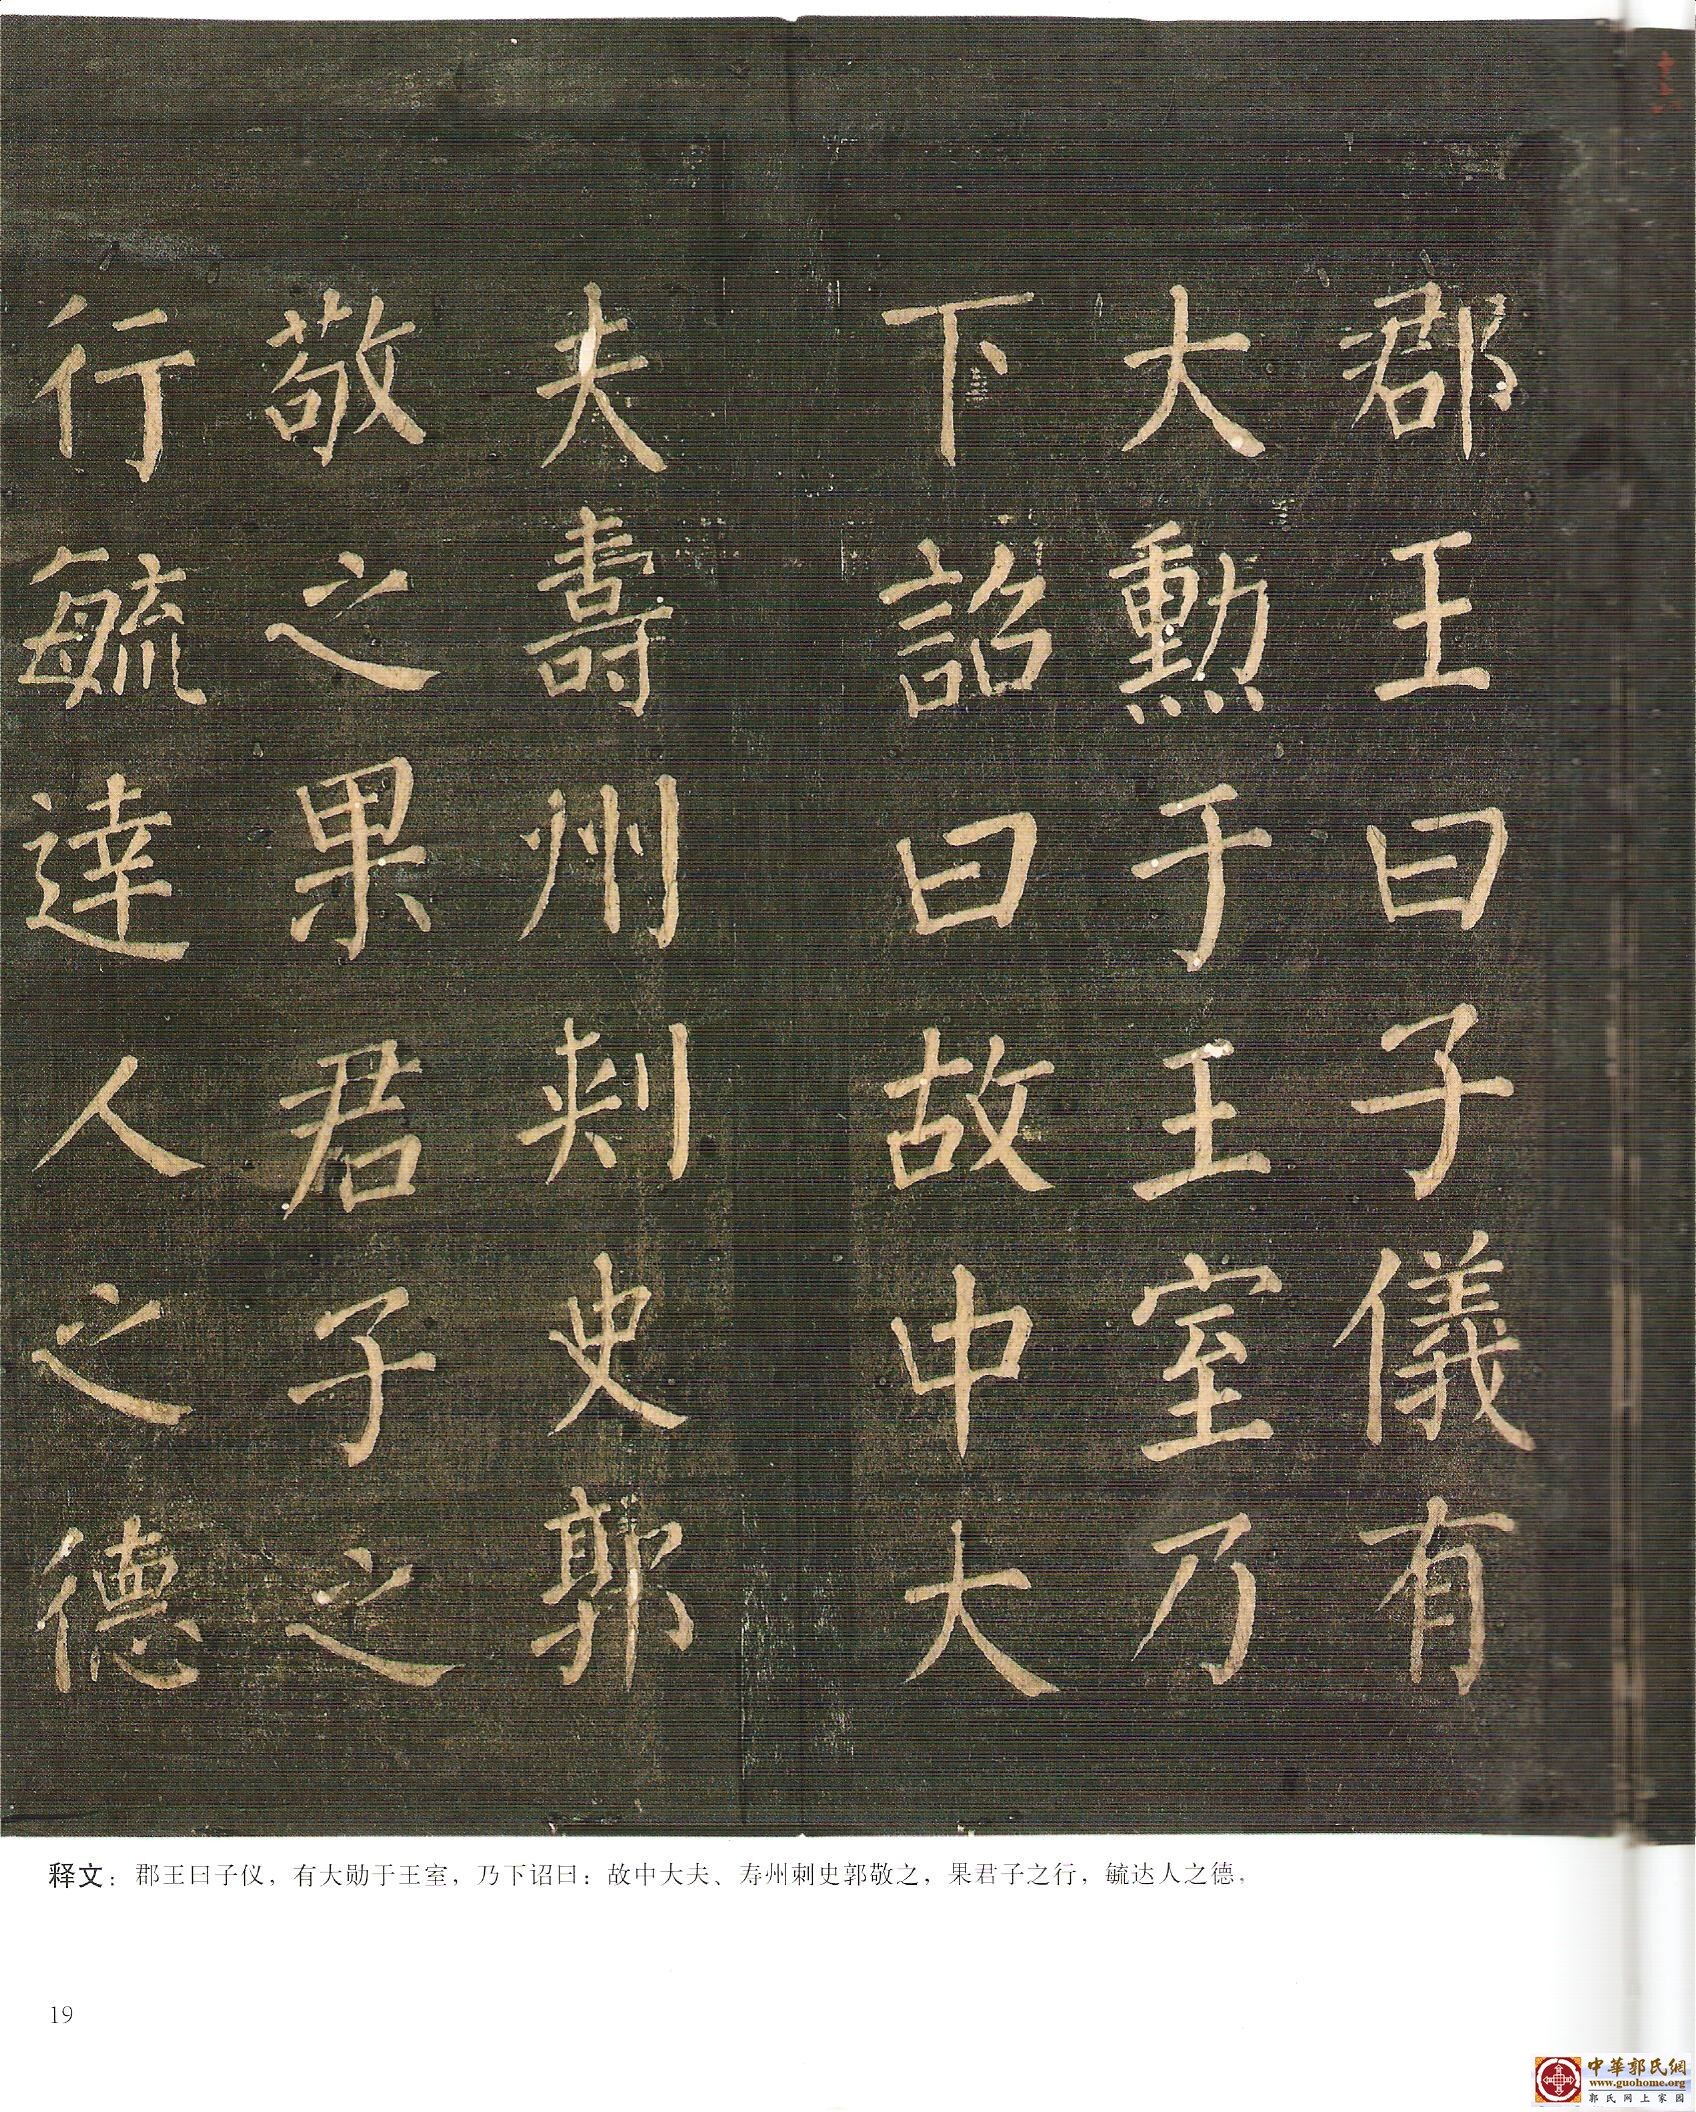 郡王曰子儀有
大勳于王室乃
下詔曰故中大
夫壽州刺史郭
敬之果君子之
行毓達人之德
释文：郡王曰子仪，有大勋于王室，乃下诏曰：故中大夫、寿州刺史郭敬之，果君子之行，毓达人之德，
19
中華郭氏網
www.guohome.org
郭氏网上家园